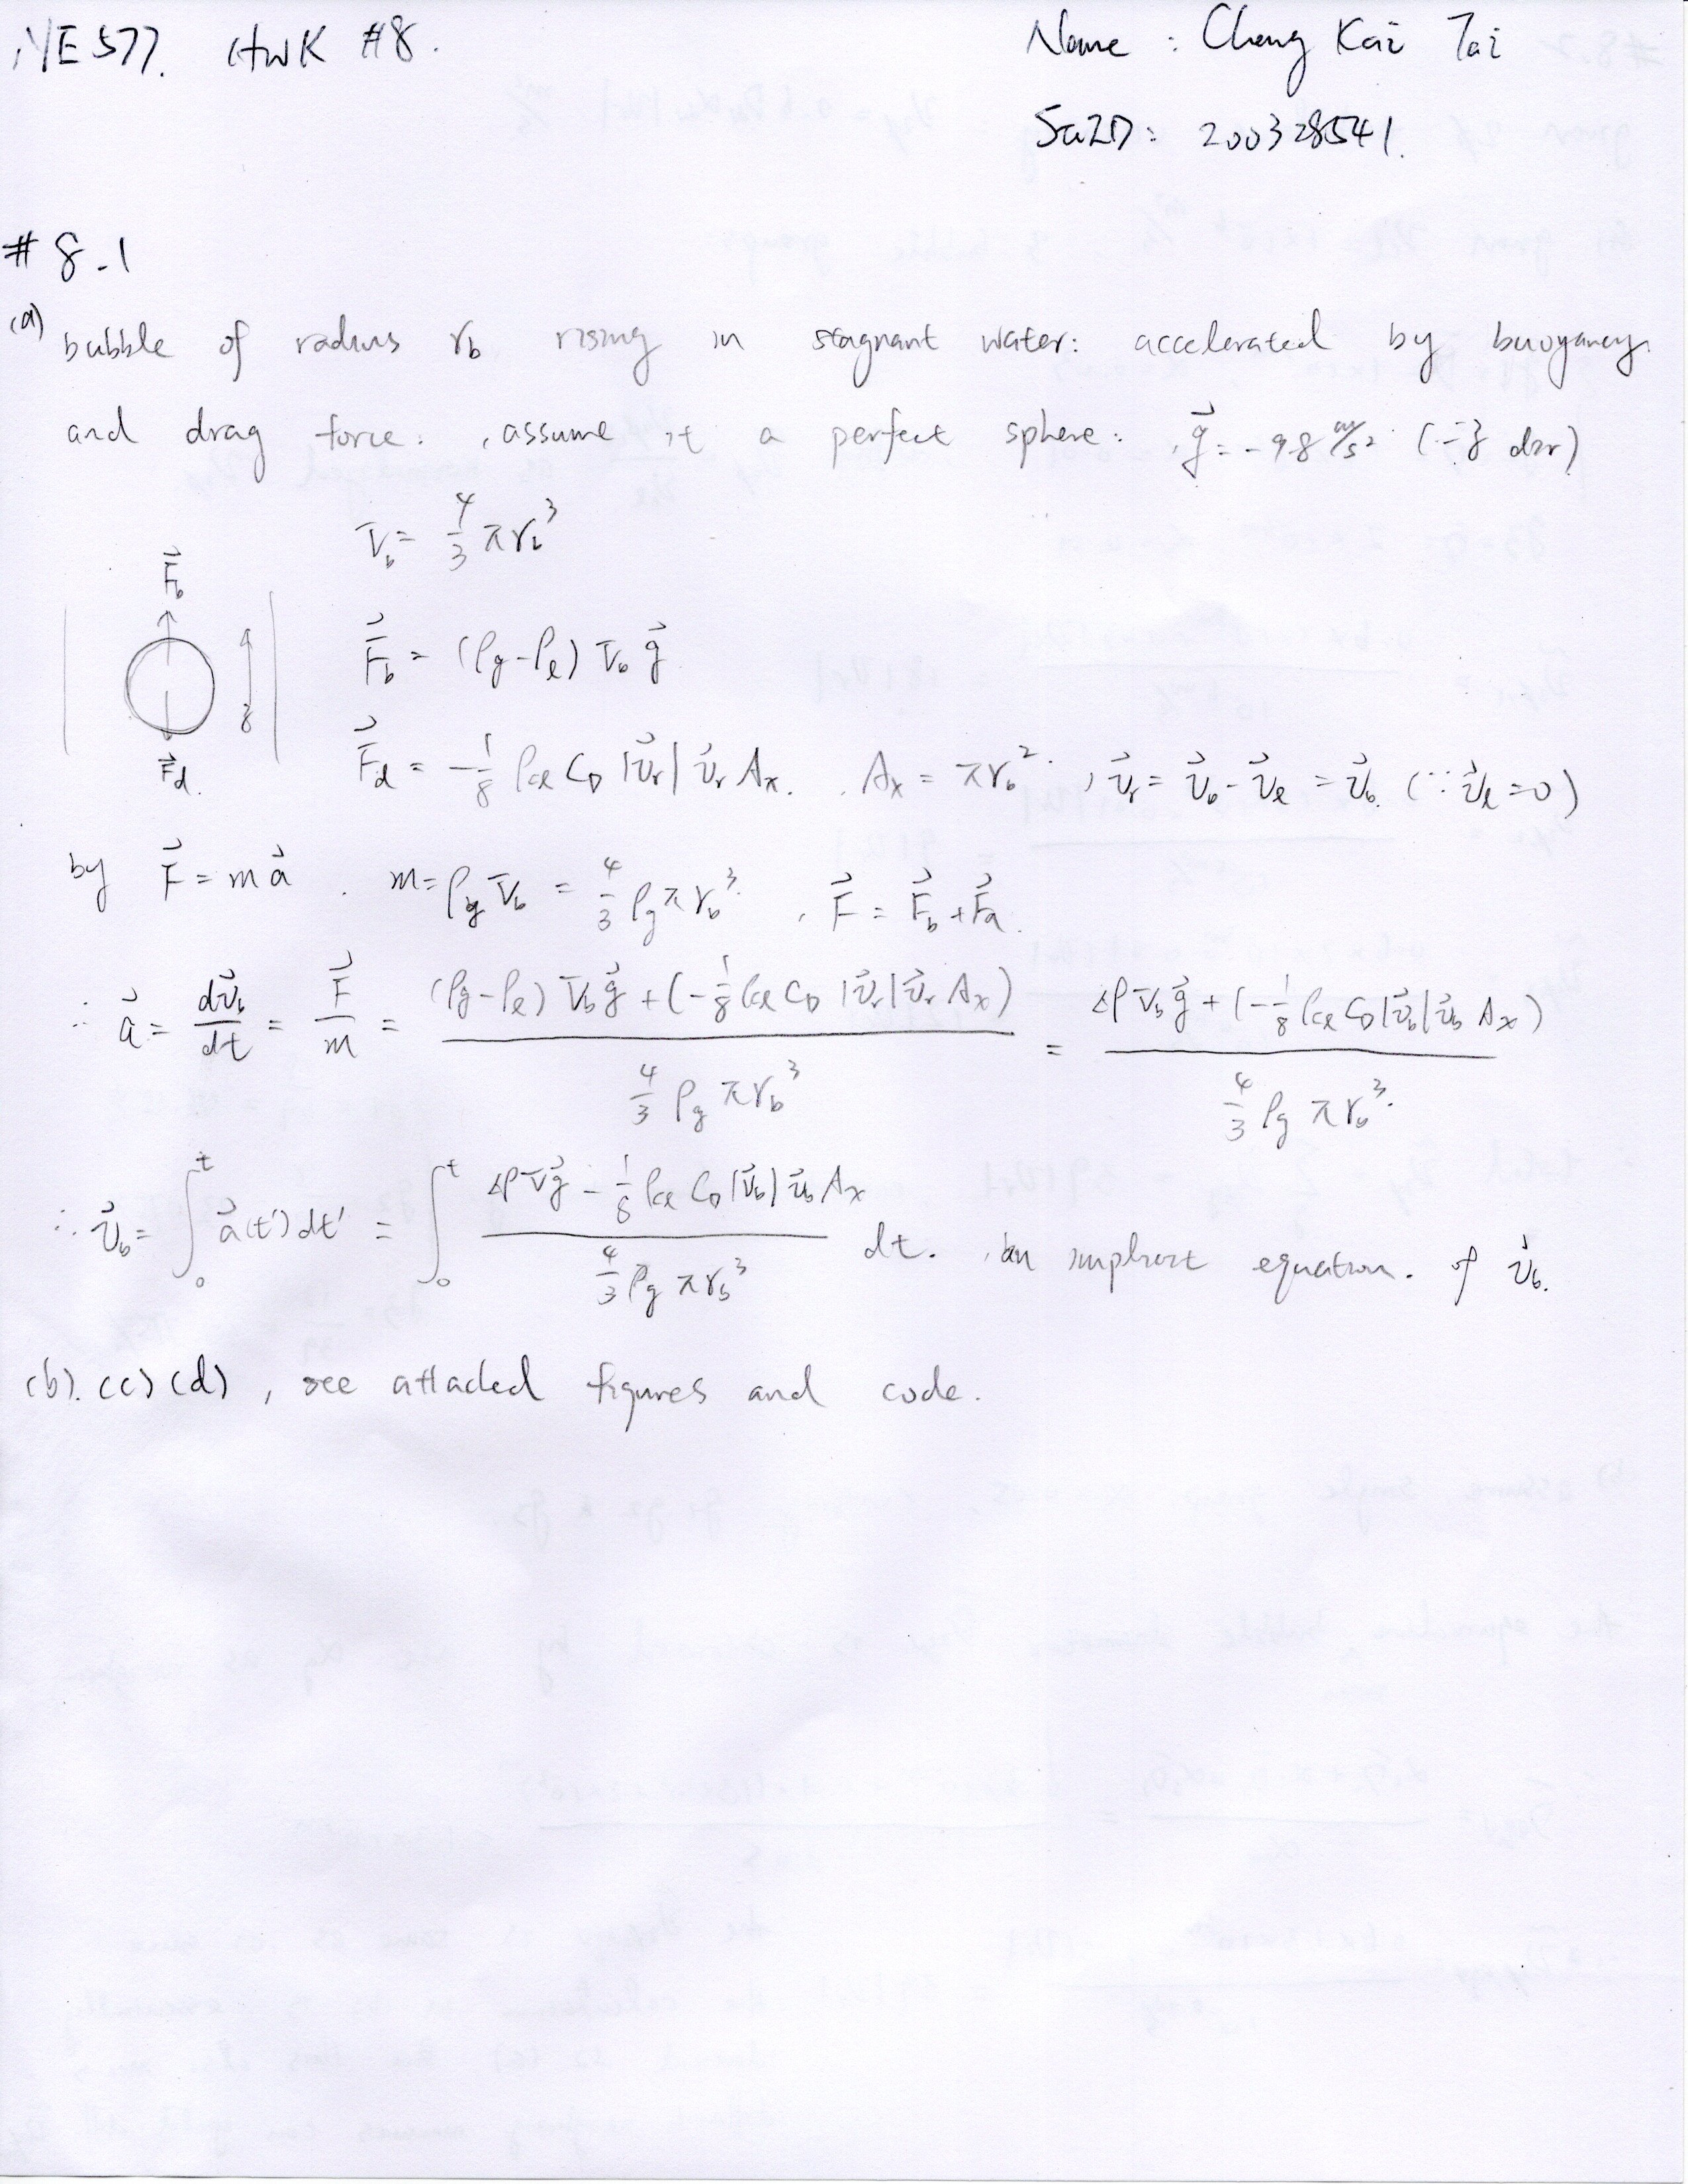 NE 577. HWK #8.
Name : Cheng Kai Tai
StuID: 200328541.
# 8.1
(a) bubble of radius r_b rising in stagnant water: accelerated by buoyancy.
and drag force. , assume it a perfect sphere. , g⃗ = -9.8 m/s² (∵ z dir)
V_b = 4/3 π r_b³
F⃗_b
F⃗_b = (ρ_g - ρ_l) V_b g⃗
z
F⃗_d.
F⃗_d = -1/8 ρ_cl C_D |v⃗_r| v⃗_r A_x. , A_x = π r_b² , v⃗_r = v⃗_b - v⃗_l = v⃗_b. (∵ v⃗_l = 0)
by F⃗ = m a⃗ . m = ρ_g V_b = 4/3 ρ_g π r_b³. , F⃗ = F⃗_b + F⃗_d.
∴ a⃗ = dv⃗_b/dt = F⃗/m = ((ρ_g - ρ_l) V_b g⃗ + (-1/8 ρ_cl C_D |v⃗_r| v⃗_r A_x)) / (4/3 ρ_g π r_b³) = (Δρ V_b g⃗ + (-1/8 ρ_cl C_D |v⃗_b| v⃗_b A_x)) / (4/3 ρ_g π r_b³).
∴ v⃗_b = ∫₀ᵗ a⃗(t') dt' = ∫₀ᵗ (Δρ V g⃗ - 1/8 ρ_cl C_D |v⃗_b| v⃗_b A_x) / (4/3 ρ_g π r_b³) dt. , an implicit equation. of v⃗_b.
(b). (c) (d) , see attached figures and code.